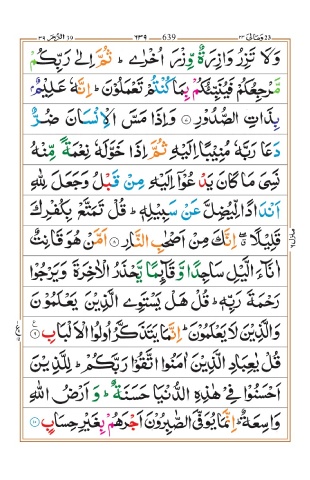 ومالی 23 639 ٦٣٩ الزمر 39
وَلَا تَزِرُ وَازِرَةٌ وِّزْرَ اُخْرٰى ؕ ثُمَّ اِلٰى رَبِّكُمْ
مَّرْجِعُكُمْ فَيُنَبِّئُكُمْ بِمَا كُنْتُمْ تَعْمَلُوْنَ ؕ اِنَّهٗ عَلِيْمٌۢ
بِذَاتِ الصُّدُوْرِ ۷ وَاِذَا مَسَّ الْاِنْسَانَ ضُرٌّ
دَعَا رَبَّهٗ مُنِيْبًا اِلَيْهِ ثُمَّ اِذَا خَوَّلَهٗ نِعْمَةً مِّنْهُ
نَسِىَ مَا كَانَ يَدْعُوْۤا اِلَيْهِ مِنْ قَبْلُ وَجَعَلَ لِلّٰهِ
اَنْدَادًا لِّيُضِلَّ عَنْ سَبِيْلِهٖ ؕ قُلْ تَمَتَّعْ بِكُفْرِكَ
قَلِيْلًا ۖ اِنَّكَ مِنْ اَصْحٰبِ النَّارِ ۸ اَمَّنْ هُوَ قَانِتٌ
اٰنَآءَ الَّيْلِ سَاجِدًا وَّقَآئِمًا يَّحْذَرُ الْاٰخِرَةَ وَيَرْجُوْا
رَحْمَةَ رَبِّهٖ ؕ قُلْ هَلْ يَسْتَوِى الَّذِيْنَ يَعْلَمُوْنَ
وَالَّذِيْنَ لَا يَعْلَمُوْنَ ؕ اِنَّمَا يَتَذَكَّرُ اُولُوا الْاَلْبَابِ ۹
قُلْ يٰعِبَادِ الَّذِيْنَ اٰمَنُوا اتَّقُوْا رَبَّكُمْ ؕ لِلَّذِيْنَ
اَحْسَنُوْا فِىْ هٰذِهِ الدُّنْيَا حَسَنَةٌ ؕ وَاَرْضُ اللّٰهِ
وَاسِعَةٌ ؕ اِنَّمَا يُوَفَّى الصّٰبِرُوْنَ اَجْرَهُمْ بِغَيْرِ حِسَابٍ ۱۰